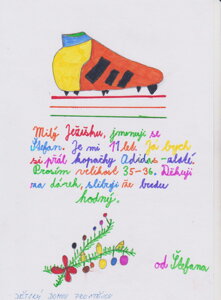 Milý Ježíšku, jmenuji se
Štefan. Je mi 11 let. Já bych
si přál kopačky Adidas - alské.
Prosím velikost 35-36. Děkuji
za dárek, slibuji že budu
hodný.
od Štefana
DĚTSKÝ DOMOV